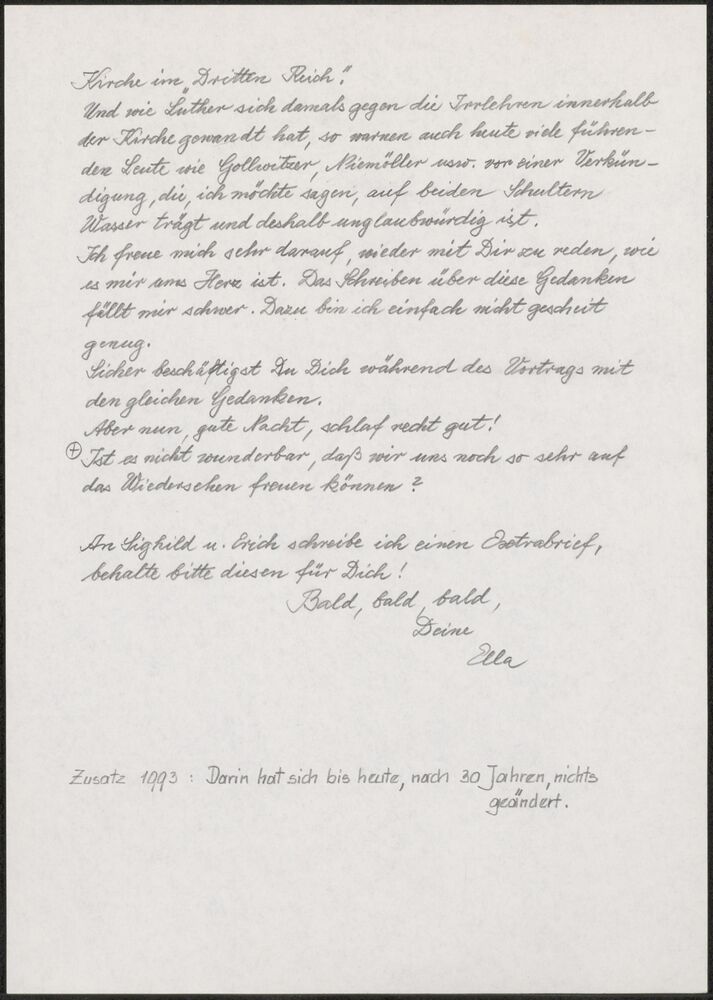 Kirche im „Dritten Reich“.
Und wie Luther sich damals gegen die Irrlehren innerhalb
der Kirche gewandt hat, so warnen auch heute viele führen-
den Leute wie Gollwitzer, Niemöller usw. vor einer Verkün-
digung, die, ich möchte sagen, auf beiden Schultern
Wasser trägt und deshalb unglaubwürdig ist.
Ich freue mich sehr darauf, wieder mit Dir zu reden, wie
es mir ums Herz ist. Das Schreiben über diese Gedanken
fällt mir schwer. Dazu bin ich einfach nicht gescheit
genug.
Sicher beschäftigst Du Dich während des Vortrags mit
den gleichen Gedanken.
Aber nun, gute Nacht, schlaf recht gut!
⊕ Ist es nicht wunderbar, daß wir uns noch so sehr auf
das Wiedersehen freuen können?
An Sighild u. Erich schreibe ich einen Extrabrief,
behalte bitte diesen für Dich!
Bald, bald, bald,
Deine
Ella
Zusatz 1993 : Darin hat sich bis heute, nach 30 Jahren, nichts
geändert.